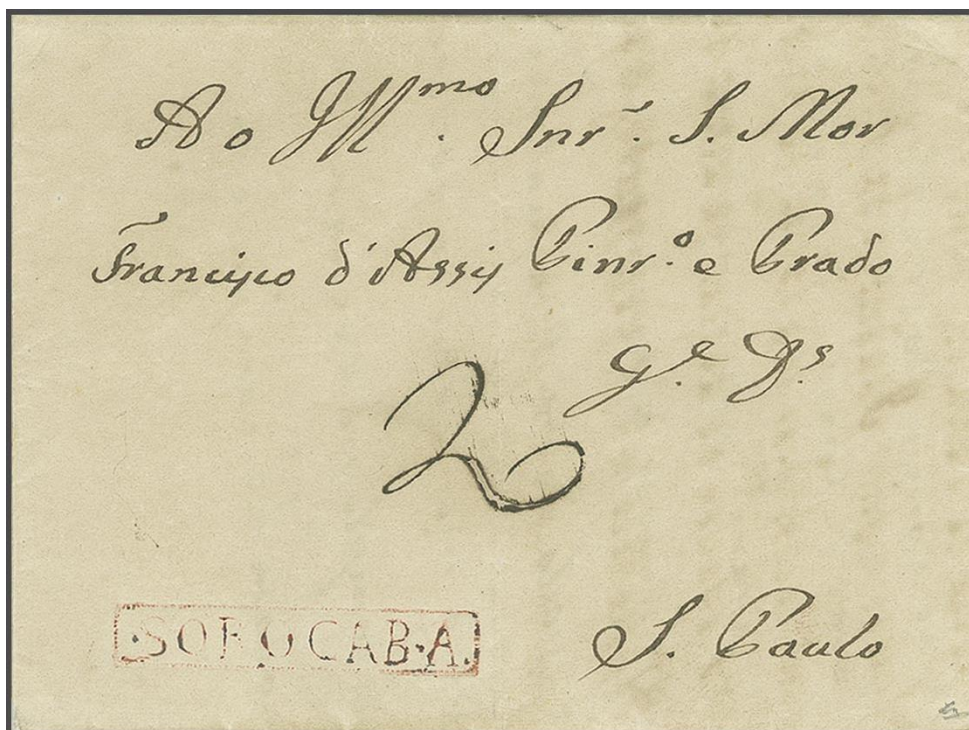 Ao Illmo. Snr. S. Mor
Francisco d'Assis Pinr.o e Prado
G.e D.s
2
SOROCABA.
S. Paulo